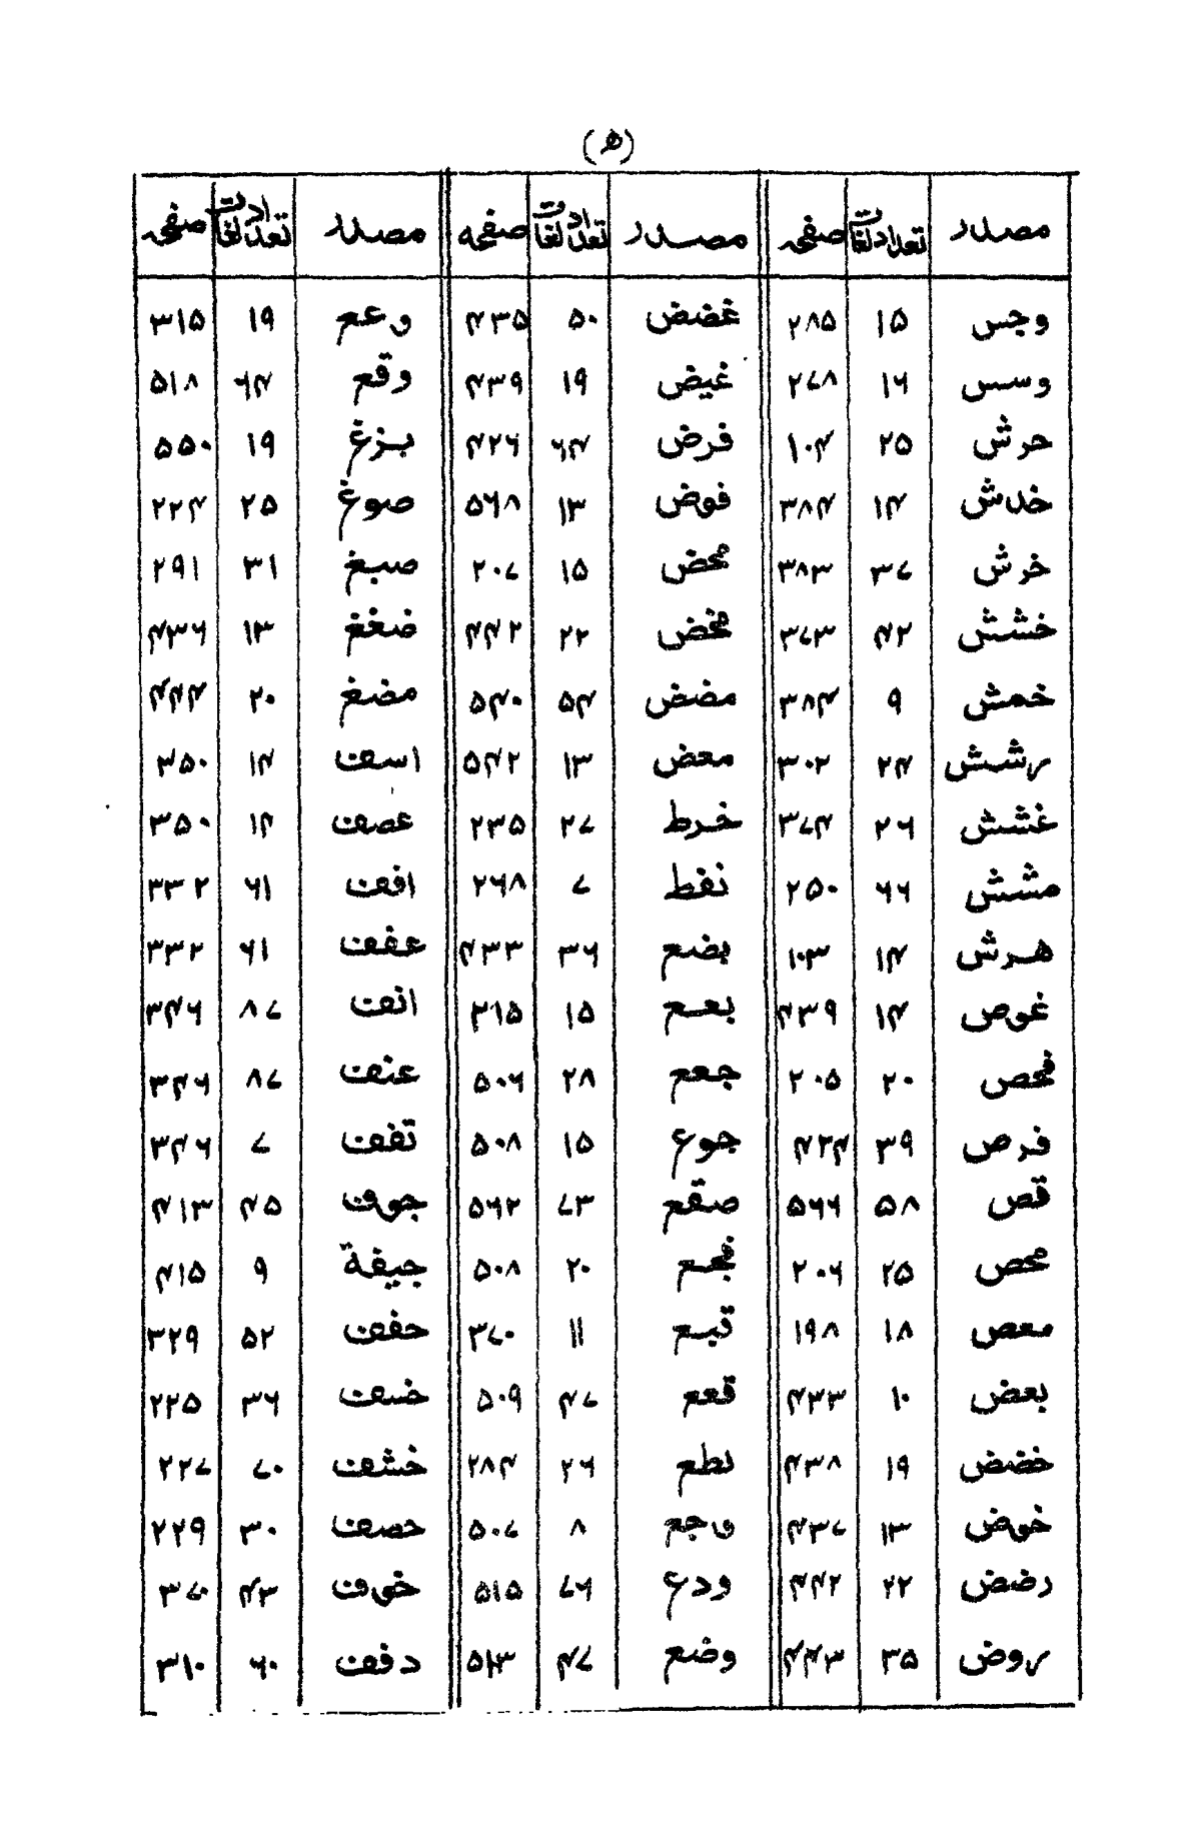 (۵)
مصدر تعداد لغات صفحہ مصدر تعداد لغات صفحہ مصدر تعداد لغات صفحہ
وجس ۱۵ ۲۸۵ غضض ۵۰ ۴۳۵ وعع ۱۹ ۳۱۵
وسس ۱۶ ۲۷۸ غیض ۱۹ ۴۳۹ وقع ۶۴ ۵۱۸
حرش ۲۵ ۱۰۴ فرض ۶۴ ۴۲۶ بزغ ۱۹ ۵۵۰
خدش ۱۴ ۳۸۴ فوض ۱۳ ۵۶۸ صوغ ۲۵ ۲۲۴
خرش ۳۷ ۳۸۳ محض ۱۵ ۲۰۷ صبغ ۳۱ ۲۹۱
خشش ۴۲ ۳۷۳ مخض ۲۲ ۴۴۲ ضغغ ۱۳ ۴۳۶
خمش ۹ ۳۸۴ مضض ۵۴ ۵۴۰ مضغ ۲۰ ۴۴۴
رشش ۲۴ ۳۰۲ معض ۱۳ ۵۴۲ اسف ۱۴ ۳۵۰
غشش ۲۶ ۳۷۴ خرط ۲۷ ۲۳۵ عصف ۱۴ ۳۵۰
مشش ۶۶ ۲۵۰ نفط ۷ ۲۶۸ افف ۶۱ ۳۳۲
هرش ۱۴ ۱۰۳ بضع ۳۶ ۴۳۳ عفف ۶۱ ۳۳۲
غوص ۱۴ ۴۳۹ بعع ۱۵ ۳۱۵ انف ۸۷ ۳۴۶
فحص ۲۰ ۲۰۵ جعع ۲۸ ۵۰۶ عنف ۸۷ ۳۴۶
فرص ۳۹ ۴۲۴ جوع ۱۵ ۵۰۸ تفف ۷ ۳۴۶
قص ۵۸ ۵۶۶ صقع ۷۳ ۵۶۲ جوف ۴۵ ۴۱۳
محص ۲۵ ۲۰۶ فجع ۲۰ ۵۰۸ جیفة ۹ ۴۱۵
معص ۱۸ ۱۹۸ قبع ۱۱ ۳۷۰ حفف ۵۲ ۳۲۹
بعض ۱۰ ۴۳۳ قعع ۴۷ ۵۰۹ خسف ۳۶ ۲۲۵
خضض ۱۹ ۴۳۸ نطع ۲۶ ۲۸۴ خشف ۷۰ ۲۲۷
خوض ۱۳ ۴۳۷ وجع ۸ ۵۰۷ حصف ۳۰ ۲۲۹
رضض ۲۲ ۴۴۲ ودع ۷۶ ۵۱۵ خوف ۴۳ ۳۷۰
روض ۳۵ ۴۴۳ وضع ۴۷ ۵۱۳ دفف ۶۰ ۳۱۰